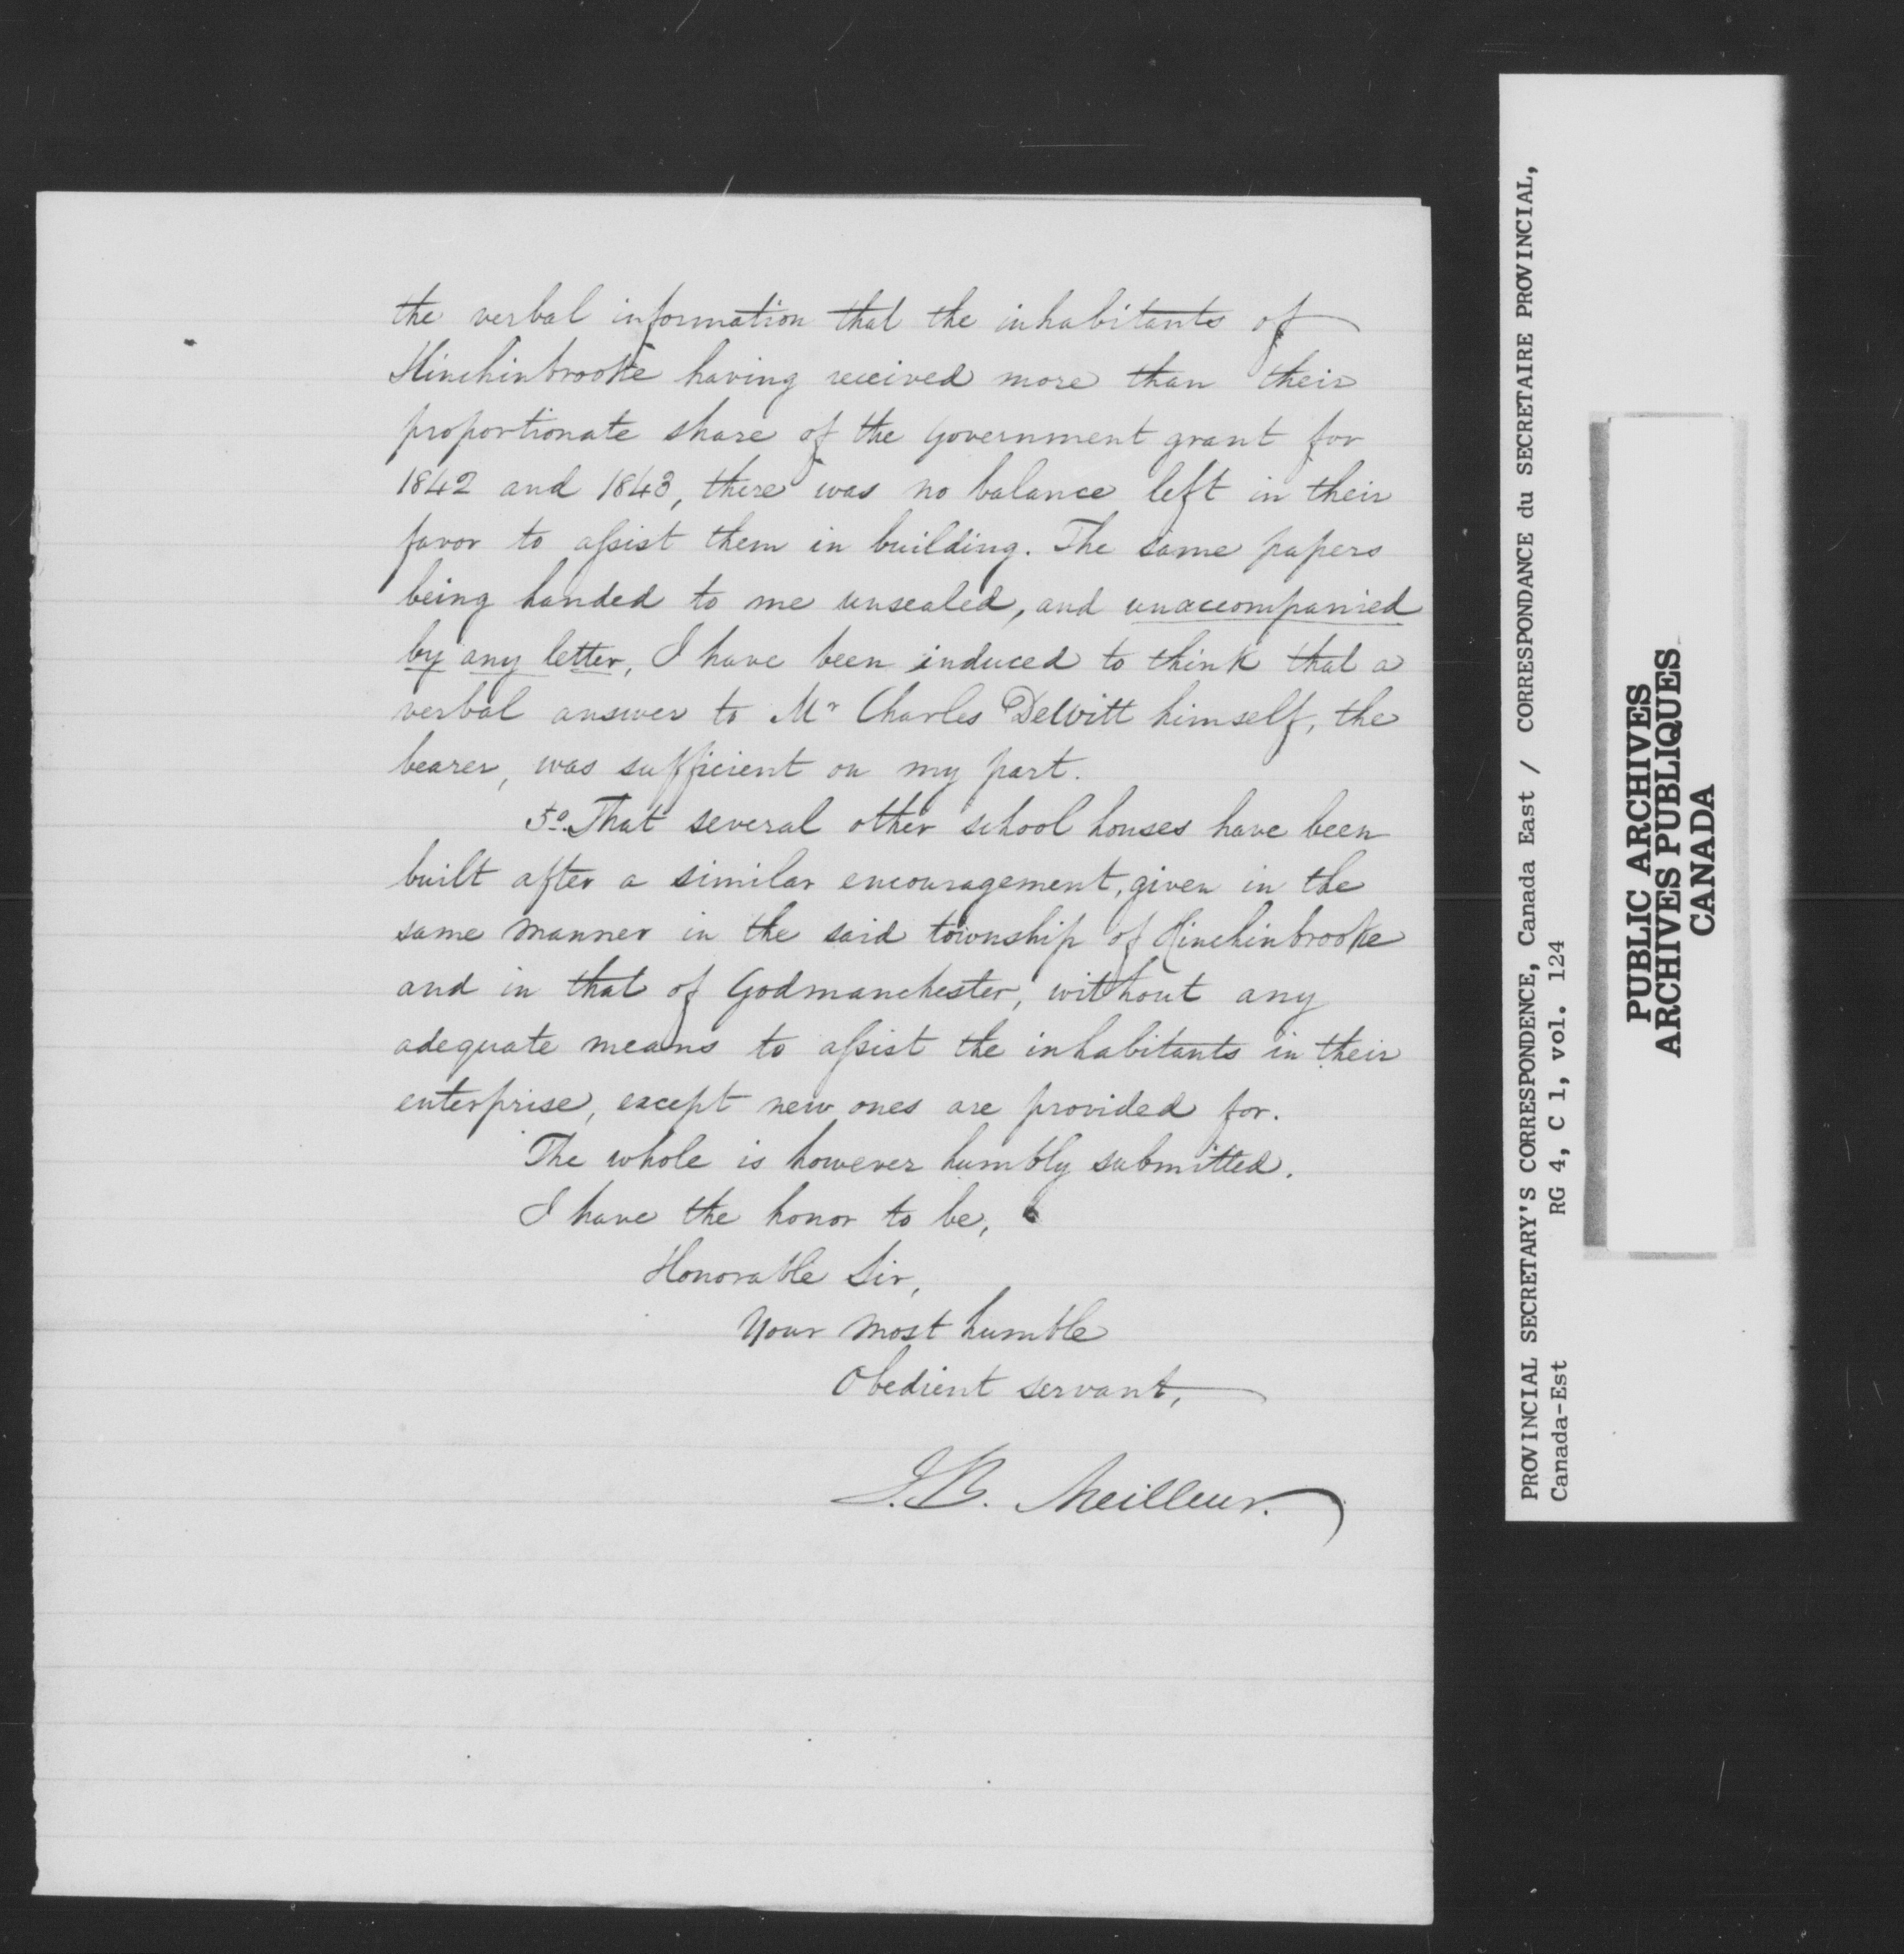 the verbal information that the inhabitants of
Hinchinbrooke having received more than their
proportionate share of the Government grant for
1842 and 1843, there was no balance left in their
favor to assist them in building. The same papers
being handed to me unsealed, and unaccompanied
by any letter, I have been induced to think that a
verbal answer to Mr Charles DeWitt himself, the
bearer, was sufficient on my part.
5o. That several other school houses have been
built after a similar encouragement, given in the
same manner in the said township of Hinchinbrooke
and in that of Godmanchester, without any
adequate means to assist the inhabitants in their
enterprise, except new ones are provided for.
The whole is however humbly submitted.
I have the honor to be,
Honorable Sir,
Your most humble
Obedient servant,
J. B. Meilleur.
PROVINCIAL SECRETARY'S CORRESPONDENCE, Canada East / CORRESPONDANCE du SECRETAIRE PROVINCIAL,
Canada-Est RG 4, C 1, vol. 124
PUBLIC ARCHIVES
ARCHIVES PUBLIQUES
CANADA